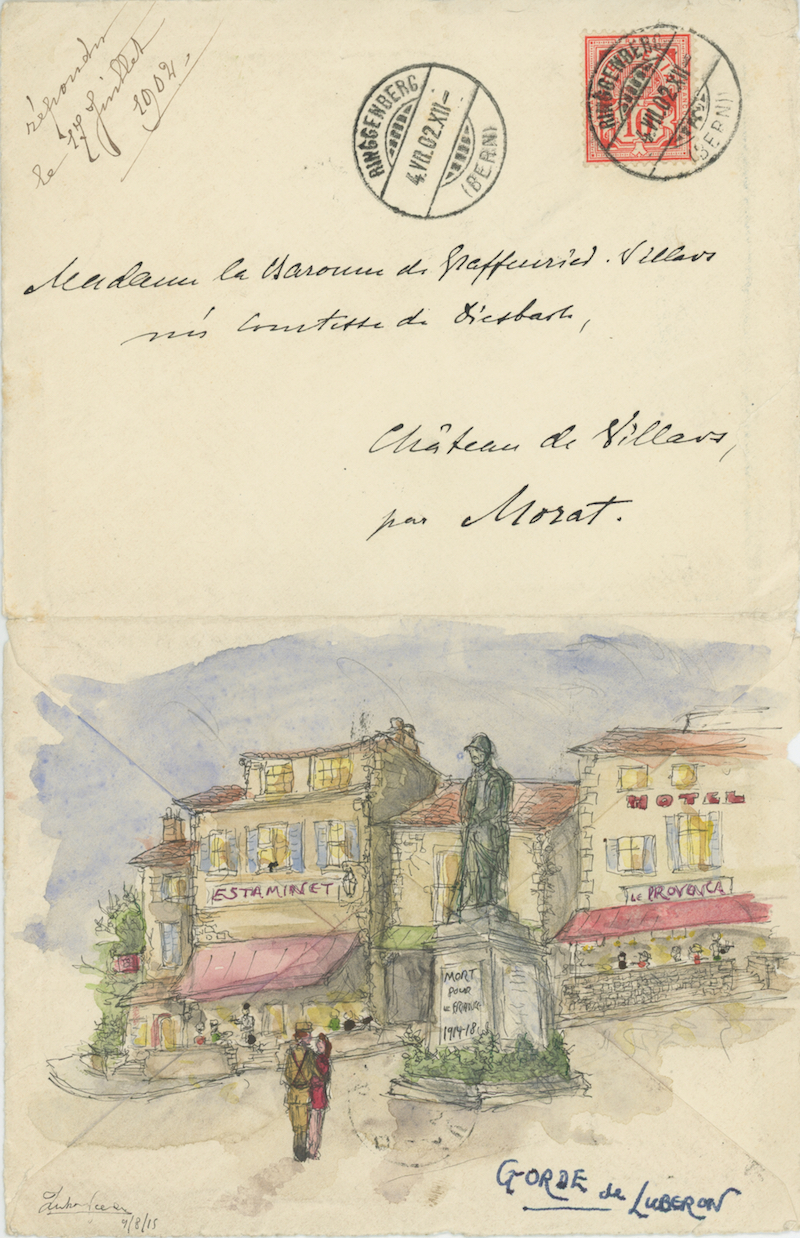 répondu
le 17 juillet
1902.
RINGGENBERG
4.VII.02.XII-
(BERN)
RINGGENBERG
4.VII.02.XII-
(BERN)
10
Madame la Baronne de Graffenried-Villars
née Comtesse de Diesbach,
Château de Villars,
par Morat.
HOTEL
ESTAMINET
LE PROVENCA
MORT
POUR
LE FRANCE
1914-18
GORDE de LUBERON
9/8/15